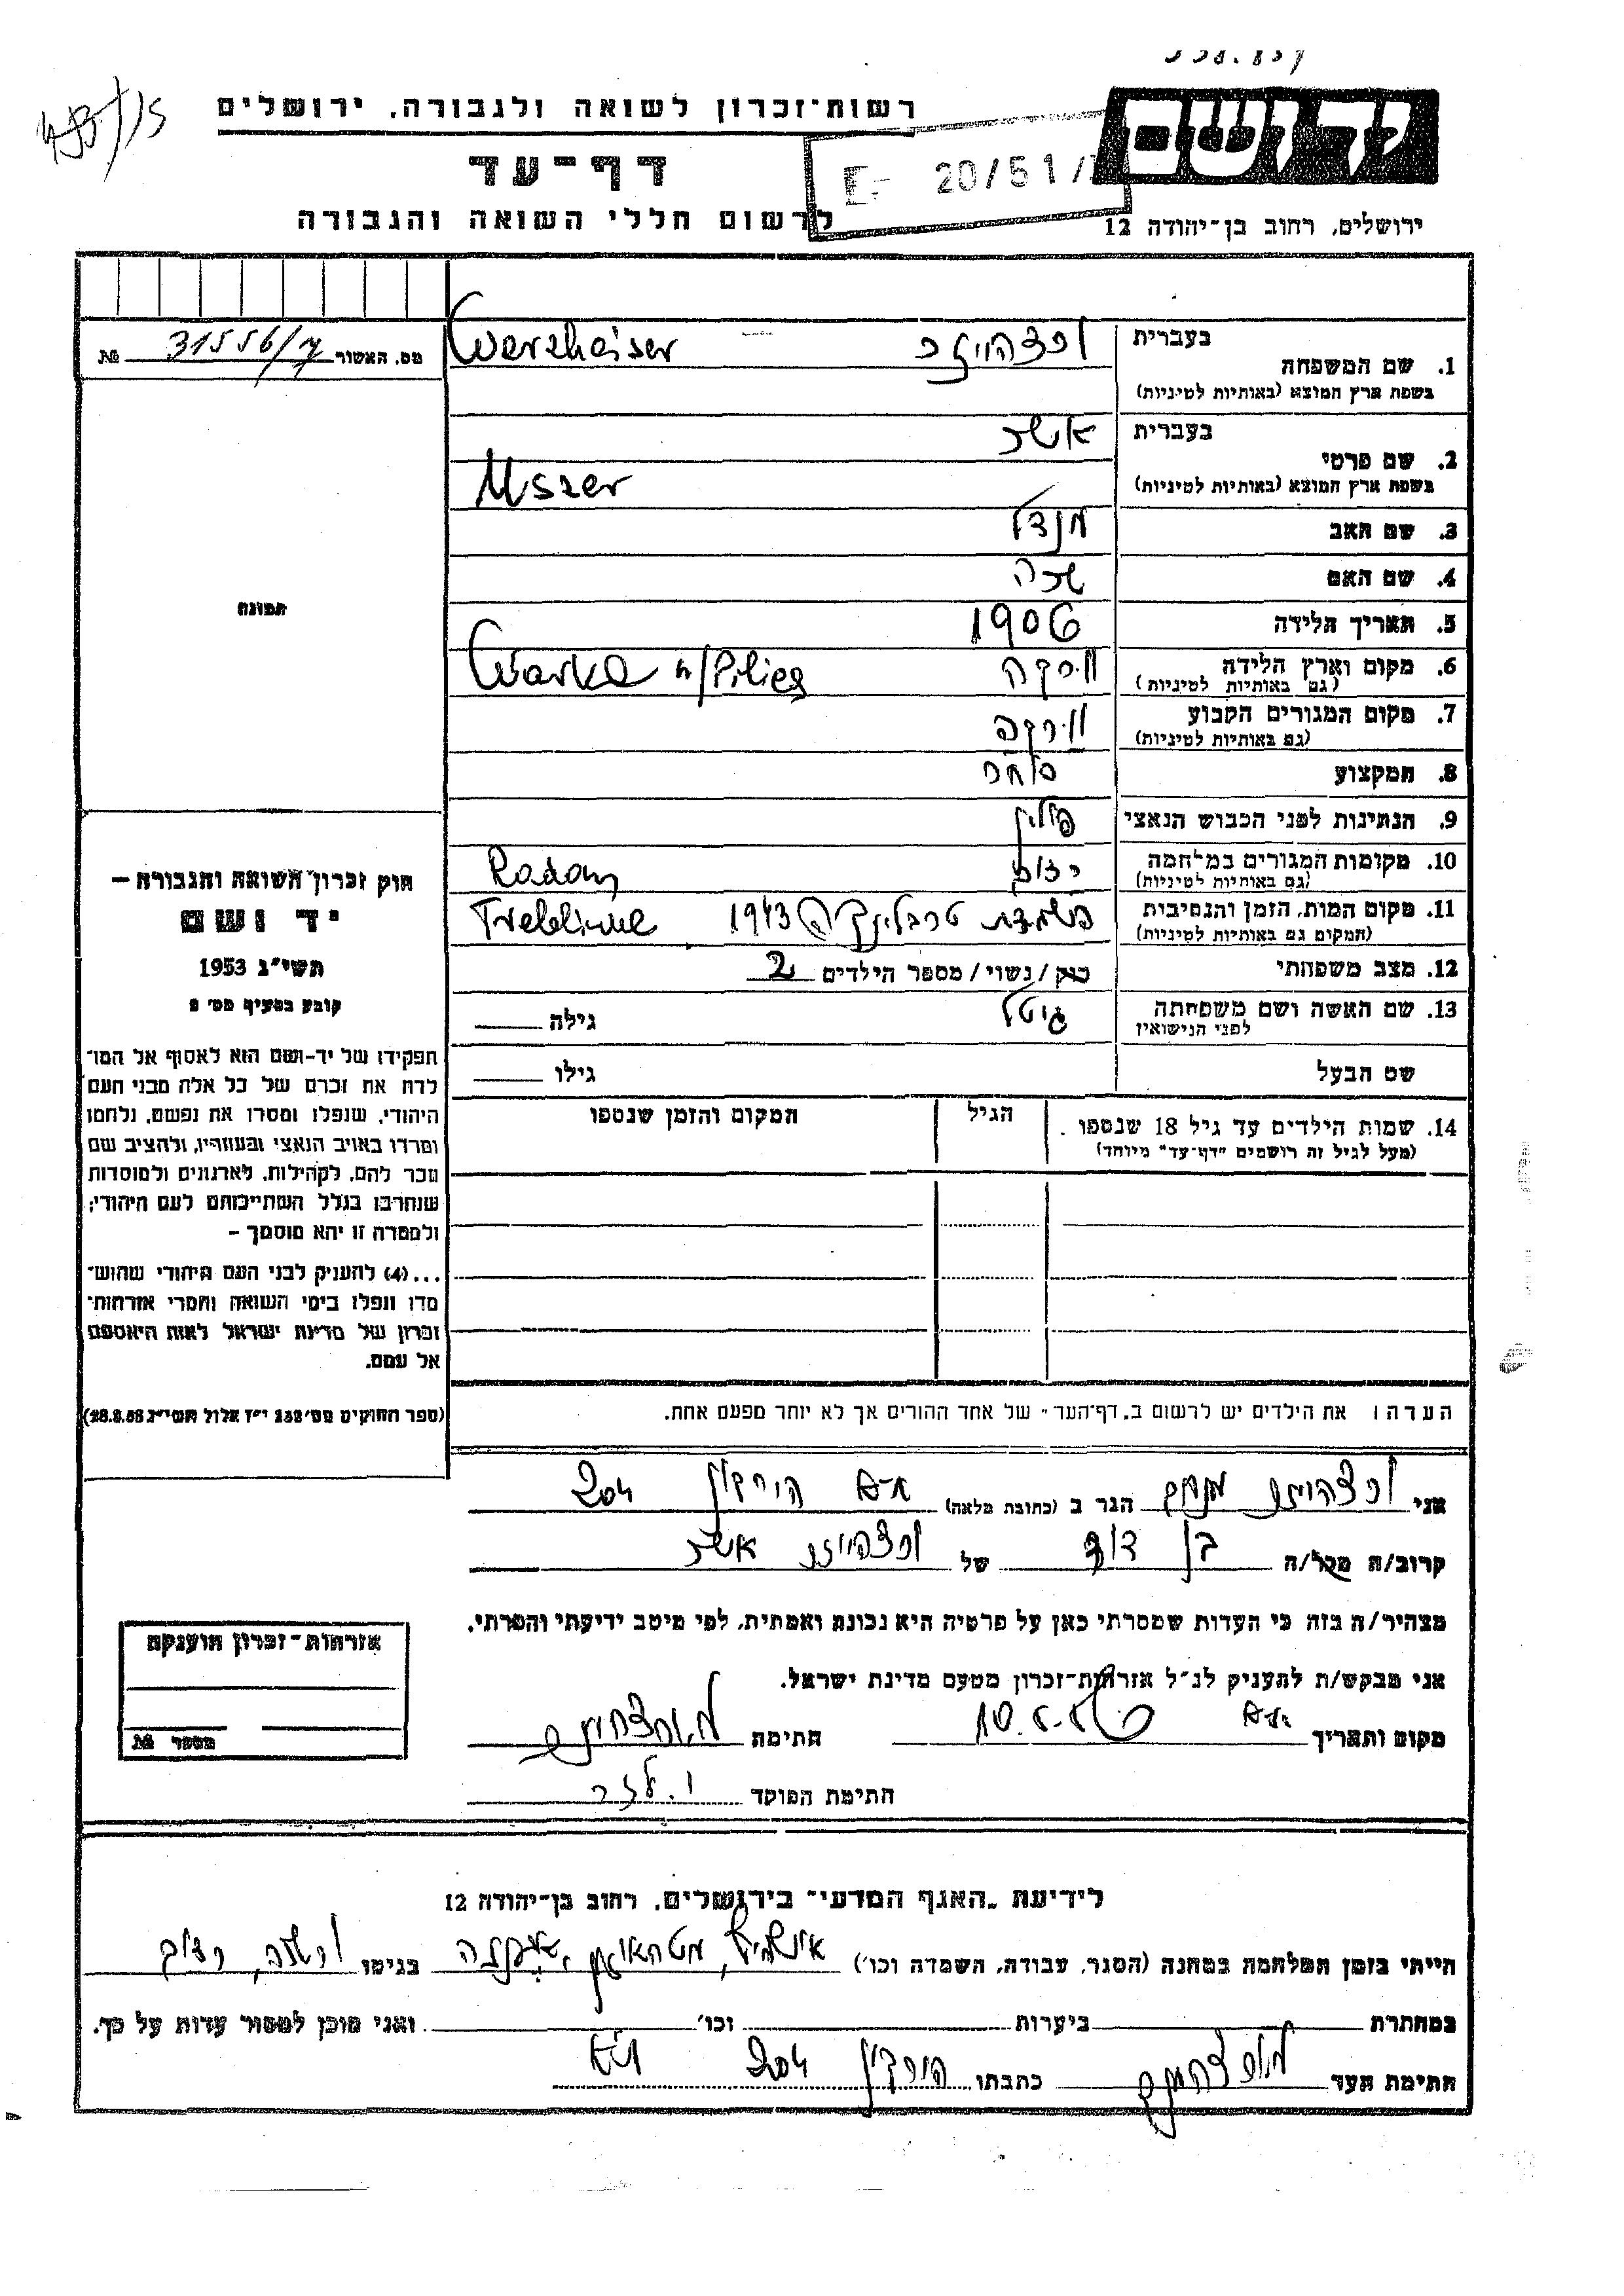 רשות־זכרון לשואה ולגבורה, ירושלים
יד ושם
דף־עד
20/51
לרשום חללי השואה והגבורה
ירושלים, רחוב בן־יהודה 12
מס. האשור 31556/ № 
בעברית
1. שם המשפחה Werzheiser
בשפת ארץ המוצא (באותיות לטיניות)
בעברית אשר
2. שם פרטי
בשפת ארץ המוצא (באותיות לטיניות) Uszer
3. שם האב מנדל
4. שם האם שרה
5. תאריך הלידה 1906
6. מקום וארץ הלידה ורקה Warka n/Pilicą
(גם באותיות לטיניות)
7. מקום המגורים הקבוע ורקה
(גם באותיות לטיניות)
8. המקצוע סוחר
9. הנתינות לפני הכבוש הנאצי פולין
10. מקומות המגורים במלחמה רדום Radom
(גם באותיות לטיניות)
11. מקום המות, הזמן והנסיבות טרבלינקה 1943
(המקום גם באותיות לטיניות)
12. מצב משפחתי רווק / נשוי / מספר הילדים 2
13. שם האשה ושם משפחתה גיטל גילה
לפני הנישואין
שם הבעל גילו
14. שמות הילדים עד גיל 18 שנספו הגיל המקום והזמן שנספו
(מעל לגיל זה רושמים "דף־עד" מיוחד)
הערה: את הילדים יש לרשום ב„דף־העד" של אחד ההורים אך לא יותר מפעם אחת.
תמונה
חוק זכרון השואה והגבורה –
יד ושם
תשי"ג 1953
קובע בסעיף מס' 2
תפקידו של יד־ושם הוא לאסוף אל המו־
לדת את זכרם של כל אלה מבני העם
היהודי, שנפלו ומסרו את נפשם, נלחמו
ומרדו באויב הנאצי ובעוזריו, ולהציב שם
וזכר להם, לקהילות, לארגונים ולמוסדות
שנחרבו בגלל השתייכותם לעם היהודי;
ולמטרה זו יהא מוסמך –
...(4) להעניק לבני העם היהודי שהוש־
מדו ונפלו בימי השואה והמרי אזרחות־
זכרון של מדינת ישראל לאות היאספם
אל עמם.
(ספר החוקים מס' 132 י"ז אלול תשי"ג 28.8.53)
אני הגר ב (כתובת מלאה) 204
קרוב/ה מכל/ה בן דוד של אשר
מצהיר/ה בזה כי העדות שמסרתי כאן על פרטיה היא נכונה ואמתית, לפי מיטב ידיעתי והכרתי.
אני מבקש/ת להעניק לנ"ל אזרחות־זכרון מטעם מדינת ישראל.
מקום ותאריך חתימת
חתימת הפוקד
אזרחות־זכרון הוענקה
מספר №
לידיעת „האגף המדעי" בירושלים, רחוב בן־יהודה 12
הייתי בזמן המלחמה במחנה (הסגר, עבודה, השמדה וכו') אושוויץ, מטהאוזן בגיטו ורשה, רדום
במחתרת ביערות וכו' ואני מוכן למסור עדות על כך.
חתימת העד כתבתו 204